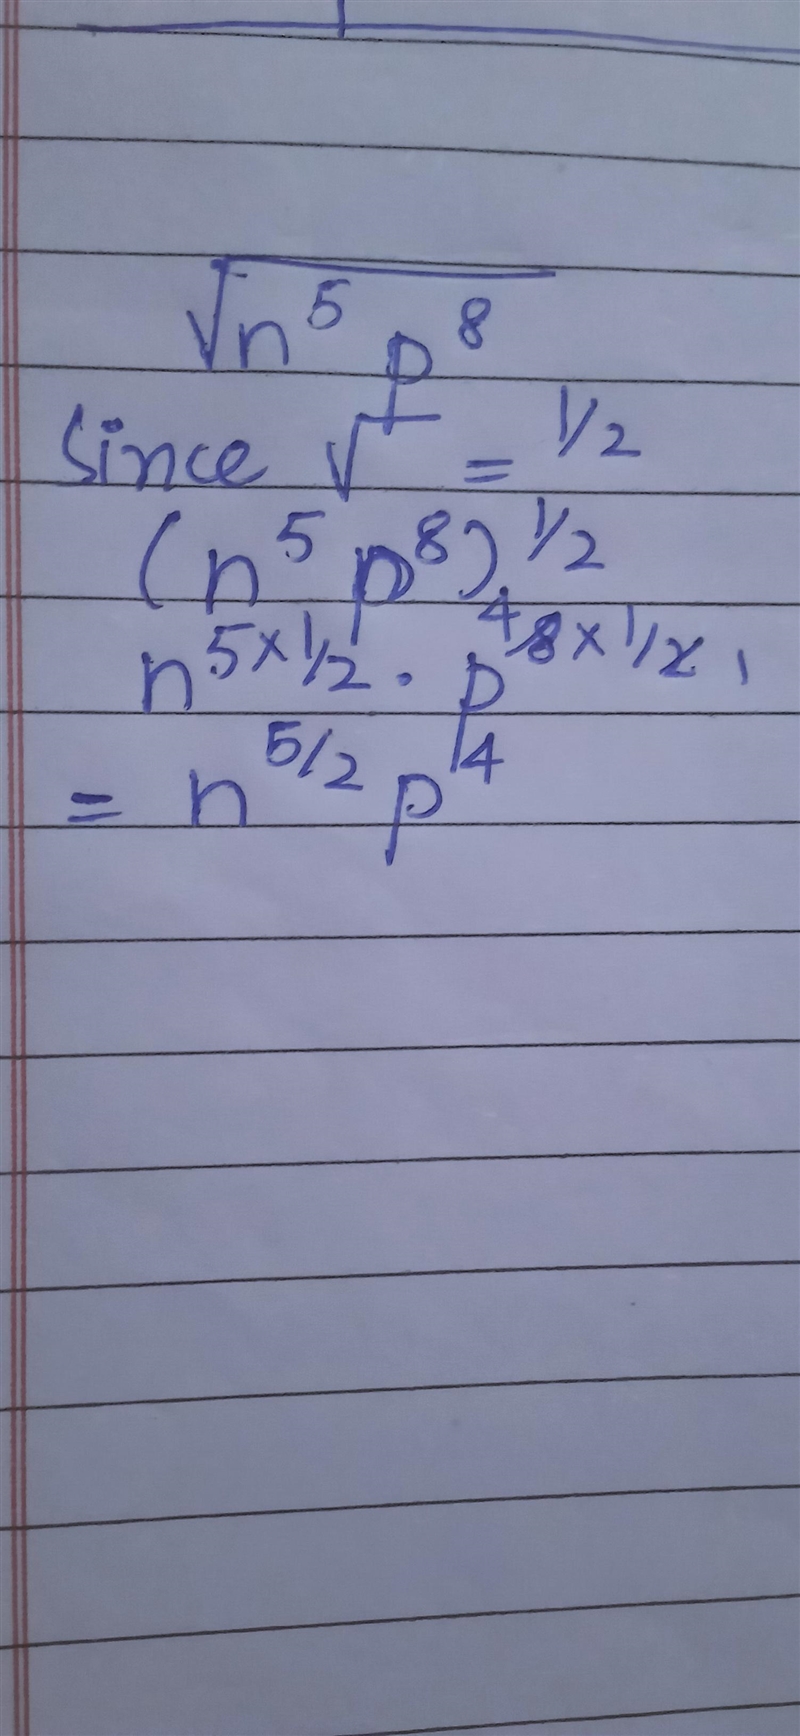 √n⁵ p⁸
Since √ = 1/2
(n⁵ p⁸)^1/2
n^5×1/2 . p^4 8×1/2 1
= n^5/2 p^4